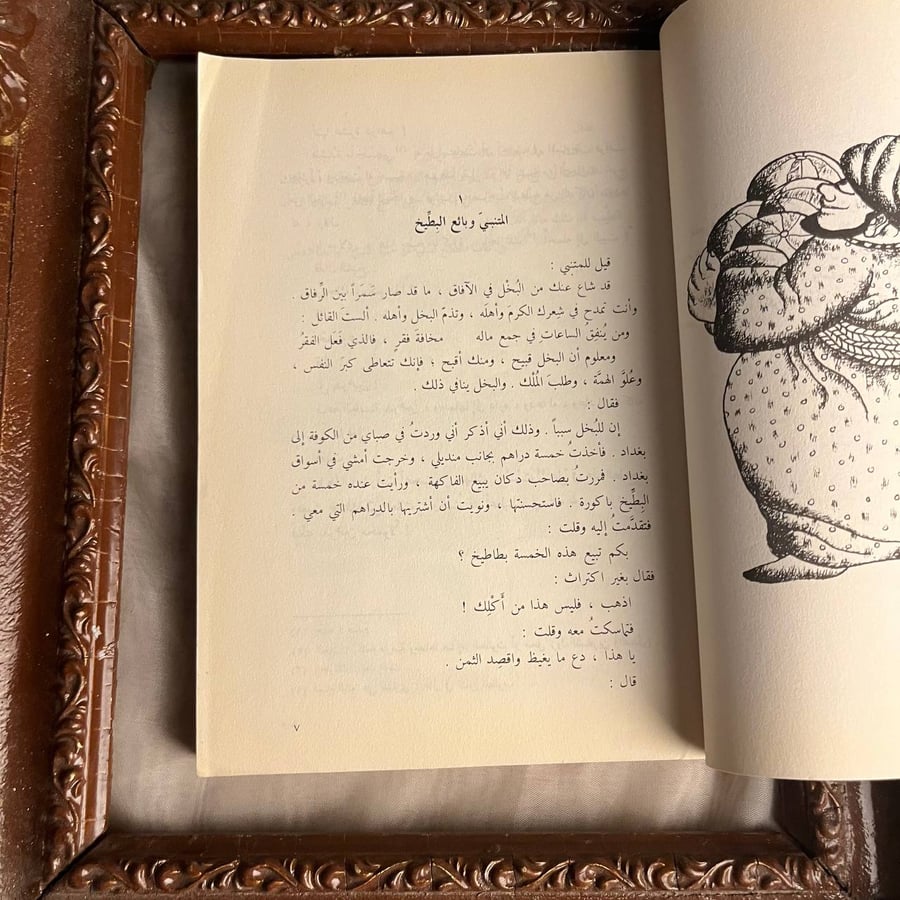 ١
المتنبيّ وبائع البِطِّيخ
قيل للمتنبي :
قد شاع عنك من البُخْل في الآفاق ، ما قد صار سَمَراً بين الرِّفاق .
وأنت تمدح في شعرك الكرمَ وأهلَه ، وتذمّ البخل وأهله . ألستَ القائل :
ومن يُنفِقِ الساعاتِ في جمع ماله مخافةَ فقرٍ ، فالذي فَعَل الفقرُ
ومعلوم أن البخل قبيح ، ومنك أقبح ؛ فإنك تتعاطى كبرَ النفس ،
وعُلوَّ الهمَّة ، وطلبَ المُلْك . والبخل ينافي ذلك .
فقال :
إن للبُخل سبباً . وذلك أني أذكر أني وردتُ في صباي من الكوفة إلى
بغداد . فأخذتُ خمسة دراهم بجانب منديلي ، وخرجت أمشي في أسواق
بغداد . فمررتُ بصاحب دكان يبيع الفاكهة ، ورأيت عنده خمسة من
البِطِّيخ باكورة . فاستحسنتها ، ونويت أن أشتريها بالدراهم التي معي .
فتقدَّمتُ إليه وقلت :
بكم تبيع هذه الخمسة بطاطيخ ؟
فقال بغير اكتراث :
اذهب ، فليس هذا من أَكْلِك !
فتماسكتُ معه وقلت :
يا هذا ، دع ما يغيظ واقصد الثمن .
قال :
٧